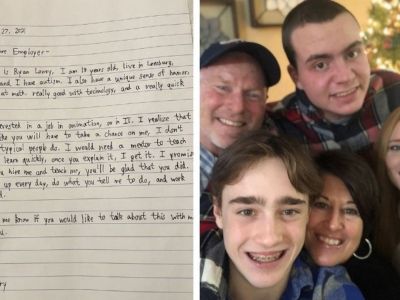 27, 2021
Employer-
is Ryan Lowry, I am 19 years old, live in Leesburg,
and I have autism. I also have a unique sense of humor,
at math, really good with technology, and a really quick
interested in a job in animation, or in IT. I realize that
like you will have to take a chance on me, I don't
typical people do. I would need a mentor to teach
learn quickly, once you explain it, I get it. I promise
hire me and teach me, you'll be glad that you did.
up every day, do what you tell me to do, and work
me know if you would like to talk about this with me